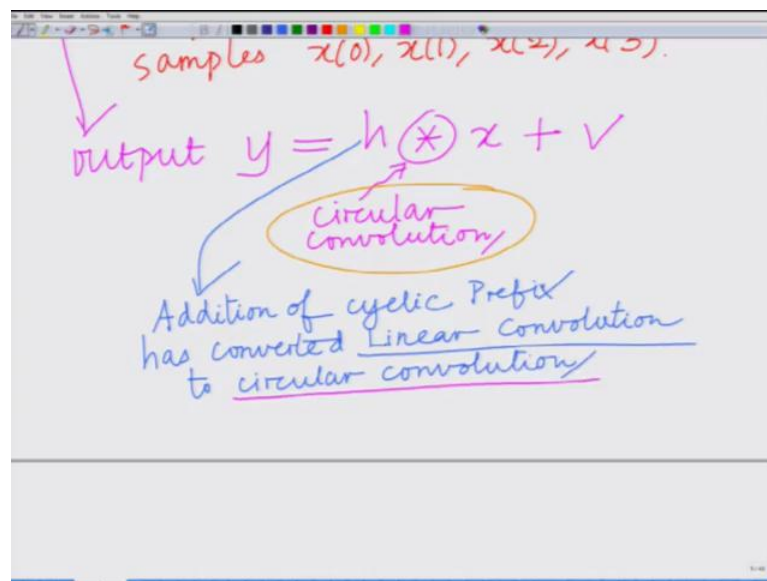 samples x(0), x(1), x(2), x(3).
output y = h ⊛ x + v
circular
convolution
Addition of cyclic Prefix
has converted Linear Convolution
to circular convolution